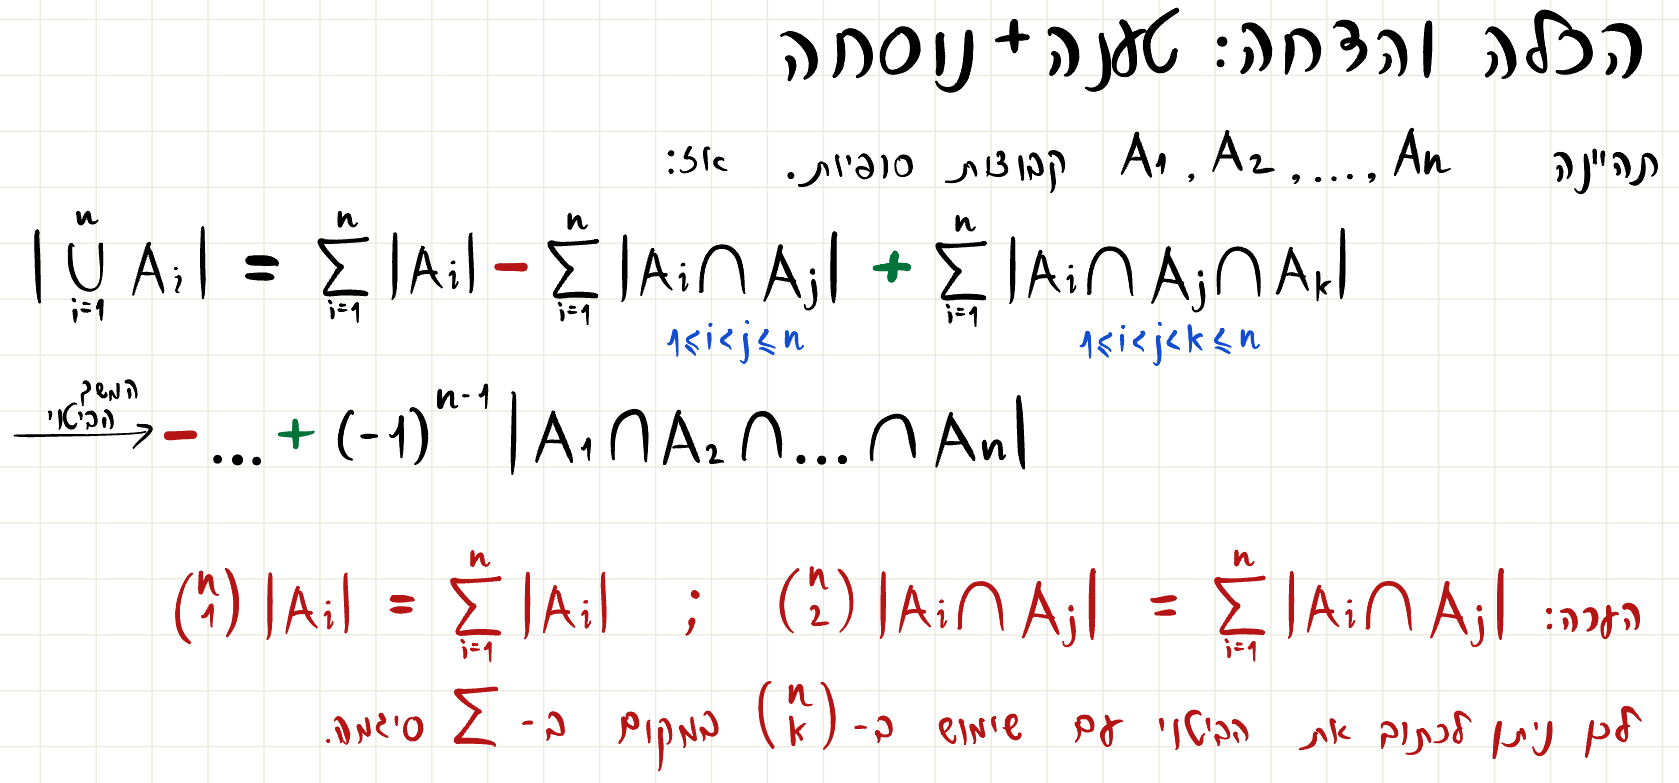 הכלה והדחה: טענה + נוסחה
תהיינה A₁, A₂, ...., Aₙ קבוצות סופיות. אזי:
|⋃ᵢ₌₁ⁿ Aᵢ| = ∑ᵢ₌₁ⁿ |Aᵢ| - ∑ᵢ₌₁ⁿ |Aᵢ ∩ Aⱼ| + ∑ᵢ₌₁ⁿ |Aᵢ ∩ Aⱼ ∩ Aₖ|
1≤i<j≤n 1≤i<j<k≤n
המשך
הביטוי
→ - ... + (-1)ⁿ⁻¹ |A₁ ∩ A₂ ∩ ... ∩ Aₙ|
הערה: (n 1) |Aᵢ| = ∑ᵢ₌₁ⁿ |Aᵢ| ; (n 2) |Aᵢ ∩ Aⱼ| = ∑ᵢ₌₁ⁿ |Aᵢ ∩ Aⱼ|
לכן ניתן לכתוב את הביטוי עם שימוש ב- (n k) במקום ב- ∑ סיגמה.